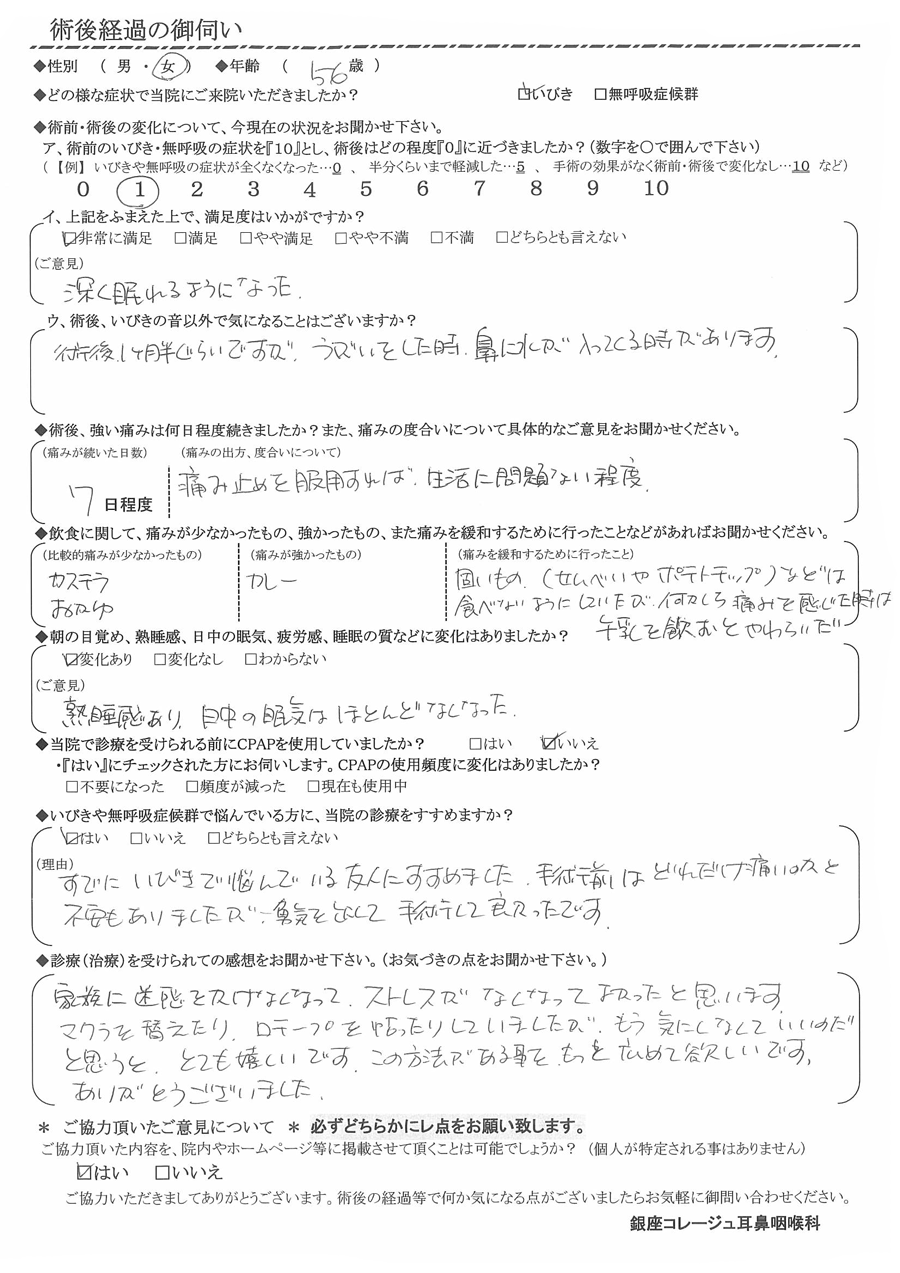 術後経過の御伺い
◆性別 ( 男 ・ 女 ) ◆年齢 ( 56 歳 )
◆どの様な症状で当院にご来院いただきましたか? ☑いびき □無呼吸症候群
◆術前・術後の変化について、今現在の状況をお聞かせ下さい。
ア、術前のいびき・無呼吸の症状を『10』とし、術後はどの程度『0』に近づきましたか?(数字を○で囲んで下さい)
(【例】 いびきや無呼吸の症状が全くなくなった…0 、 半分くらいまで軽減した…5 、 手術の効果がなく術前・術後で変化なし…10 など)
0 1 2 3 4 5 6 7 8 9 10
イ、上記をふまえた上で、満足度はいかがですか?
☑非常に満足 □満足 □やや満足 □やや不満 □不満 □どちらとも言えない
(ご意見)
深く眠れるようになった.
ウ、術後、いびきの音以外で気になることはございますか?
術後、1ヶ月半ぐらいですが、うがいをした時、鼻に水が入ってくる時があります.
◆術後、強い痛みは何日程度続きましたか?また、痛みの度合いについて具体的なご意見をお聞かせください。
(痛みが続いた日数) (痛みの出方、度合いについて)
7 日程度 痛み止めを服用すれば、生活に問題ない程度.
◆飲食に関して、痛みが少なかったもの、強かったもの、また痛みを緩和するために行ったことなどがあればお聞かせください。
(比較的痛みが少なかったもの) (痛みが強かったもの) (痛みを緩和するために行ったこと)
カステラ カレー 固いもの、(せんべいや ポテトチップ)などは
おかゆ 食べないようにしていたが、何かしら痛みを感じた時は
牛乳を飲むとやわらいだ
◆朝の目覚め、熟睡感、日中の眠気、疲労感、睡眠の質などに変化はありましたか?
☑変化あり □変化なし □わからない
(ご意見)
熟睡感あり、日中の眠気はほとんどなくなった.
◆当院で診療を受けられる前にCPAPを使用していましたか? □はい ☑いいえ
・『はい』にチェックされた方にお伺いします。CPAPの使用頻度に変化はありましたか?
□不要になった □頻度が減った □現在も使用中
◆いびきや無呼吸症候群で悩んでいる方に、当院の診療をすすめますか?
☑はい □いいえ □どちらとも言えない
(理由)
すでに いびきで悩んでいる友人にすすめました. 手術前は どれだけ痛いのかと
不安もありましたが、勇気を出して 手術して良かったです.
◆診療(治療)を受けられての感想をお聞かせ下さい。(お気づきの点をお聞かせ下さい。)
家族に迷惑をかけなくなって、ストレスが なくなって よかったと思います.
マクラを替えたり、口テープを貼ったりしていましたが、もう 気にしなくていいのだ
と思うと、とても嬉しいです. この方法がある事を、もっと広めて欲しいです.
ありがとうございました.
* ご協力頂いたご意見について * 必ずどちらかにレ点をお願い致します。
ご協力頂いた内容を、院内やホームページ等に掲載させて頂くことは可能でしょうか? (個人が特定される事はありません)
☑はい □いいえ
ご協力いただきましてありがとうございます。術後の経過等で何か気になる点がございましたらお気軽に御問い合わせください。
銀座コレージュ耳鼻咽喉科